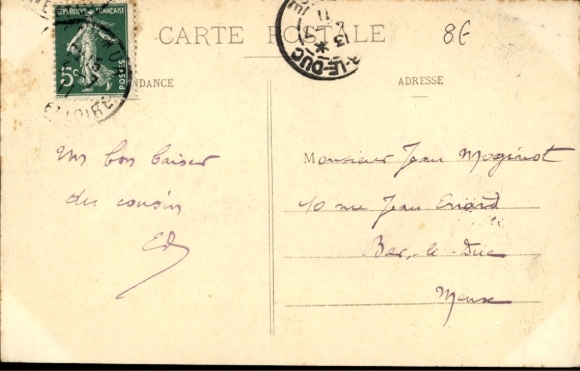 CARTE POSTALE
8€
REPUBLIQUE FRANÇAISE
5c
POSTES
-LE-DUC
ADRESSE
Un bon baiser
du cousin
Ed
Monsieur Jean Moginot
10 rue Jean Errard
Bar-le-Duc
Meuse